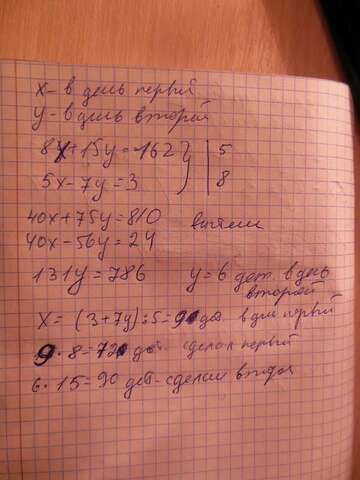 x - в день первый
y - в день второй
8x + 15y = 162 } | 5
5x - 7y = 3 | 8
40x + 75y = 810 вычтем
40x - 56y = 24
131y = 786 y = 6 дет. в день
второй
x = (3 + 7y) : 5 = 9 дет. в дне первый
9 · 8 = 72 дет - сделал первый
6 · 15 = 90 дет - сделал второй